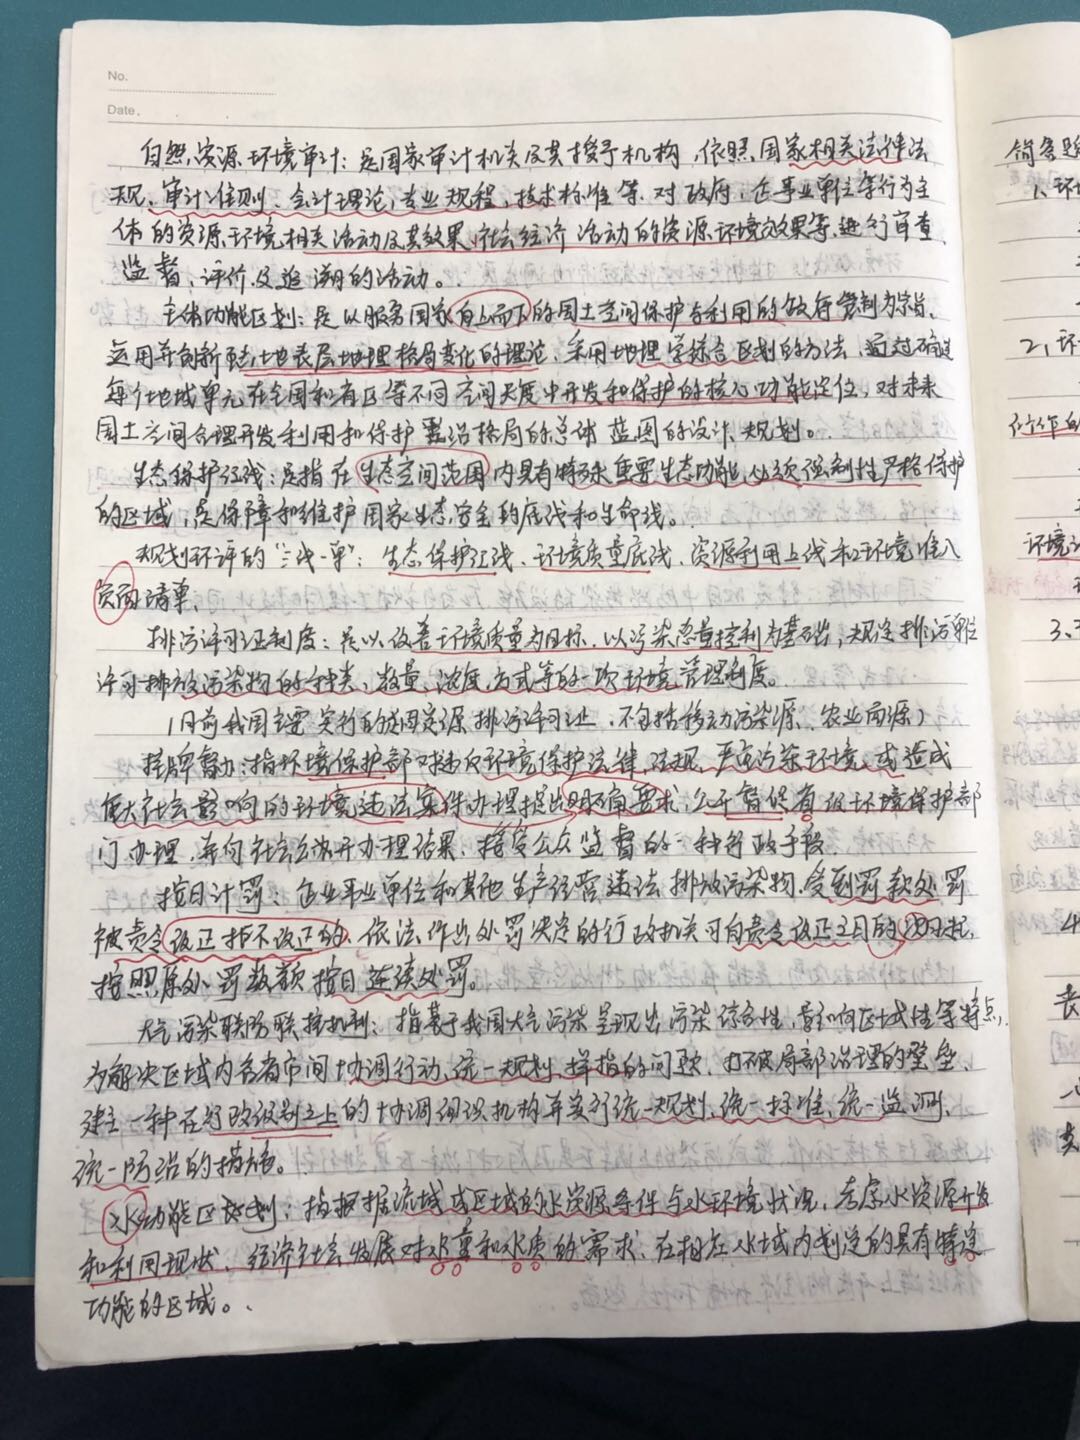 No.
Date.
自然资源环境审计：是国家审计机关及其授予机构，依照国家相关法律法
规、审计准则、会计理论，专业规程，技术标准等，对政府，企事业单位等行为主
体的资源环境相关活动及其效果，社会经济活动的资源环境效果等，进行审查、
监督，评价及追溯的活动。
主体功能区划：是以服务国家自上而下的国土空间保护与利用的政府管制为宗旨，
运用并创新陆地表层地理格局变化的理论，采用地理学综合区划的方法，通过确定
每个地域单元在全国和省区等不同空间尺度中开发和保护的核心功能定位，对未来
国土空间合理开发利用和保护整治格局的总体蓝图的设计、规划。
生态保护红线：是指在生态空间范围内具有特殊重要生态功能，必须强制性严格保护
的区域，是保障和维护国家生态安全的底线和生命线。
规划环评的"三线一单"：生态保护红线、环境质量底线、资源利用上线和环境准入
负面清单、
排污许可证制度：是以改善环境质量为目标，以污染总量控制为基础，规定排污单位
许可排放污染物的种类，数量，浓度，方式等的一项环境管理制度。
（目前我国主要实行的是固定源排污许可证，不包括移动污染源、农业面源）
挂牌督办：指环境保护部对违反环境保护法律，法规，严重污染环境或造成
重大社会影响的环境违法案件办理提出明确要求，公开督促省级环境保护部
门办理，并向社会公开办理结果，接受公众监督的一种行政手段.
按日计罚：企业事业单位和其他生产经营违法排放污染物，受到罚款处罚
被责令改正拒不改正的，依法作出处罚决定的行政机关可自责令改正之日的次日起，
按照原处罚数额按日连续处罚。
大气污染联防联控机制：指基于我国大气污染呈现出污染综合性，影响区域性等特点，
为解决区域内各省市间协调行动，统一规划、举措的问题，打破局部治理的壁垒，
建立一种在行政级别之上的协调组织机构并实行统一规划、统一标准、统一监测、
统一防治的措施。
水功能区划：指根据流域或区域的水资源条件与水环境状况，考虑水资源开发
和利用现状，经济社会发展对水量和水质的需求，在相应水域内划定的具有特定
功能的区域。
简答题
1、环
2、环
环境
3、